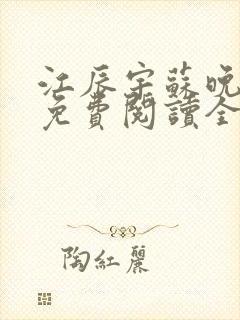 江辰宇蘇晚
免費閱讀全
陶紅麗